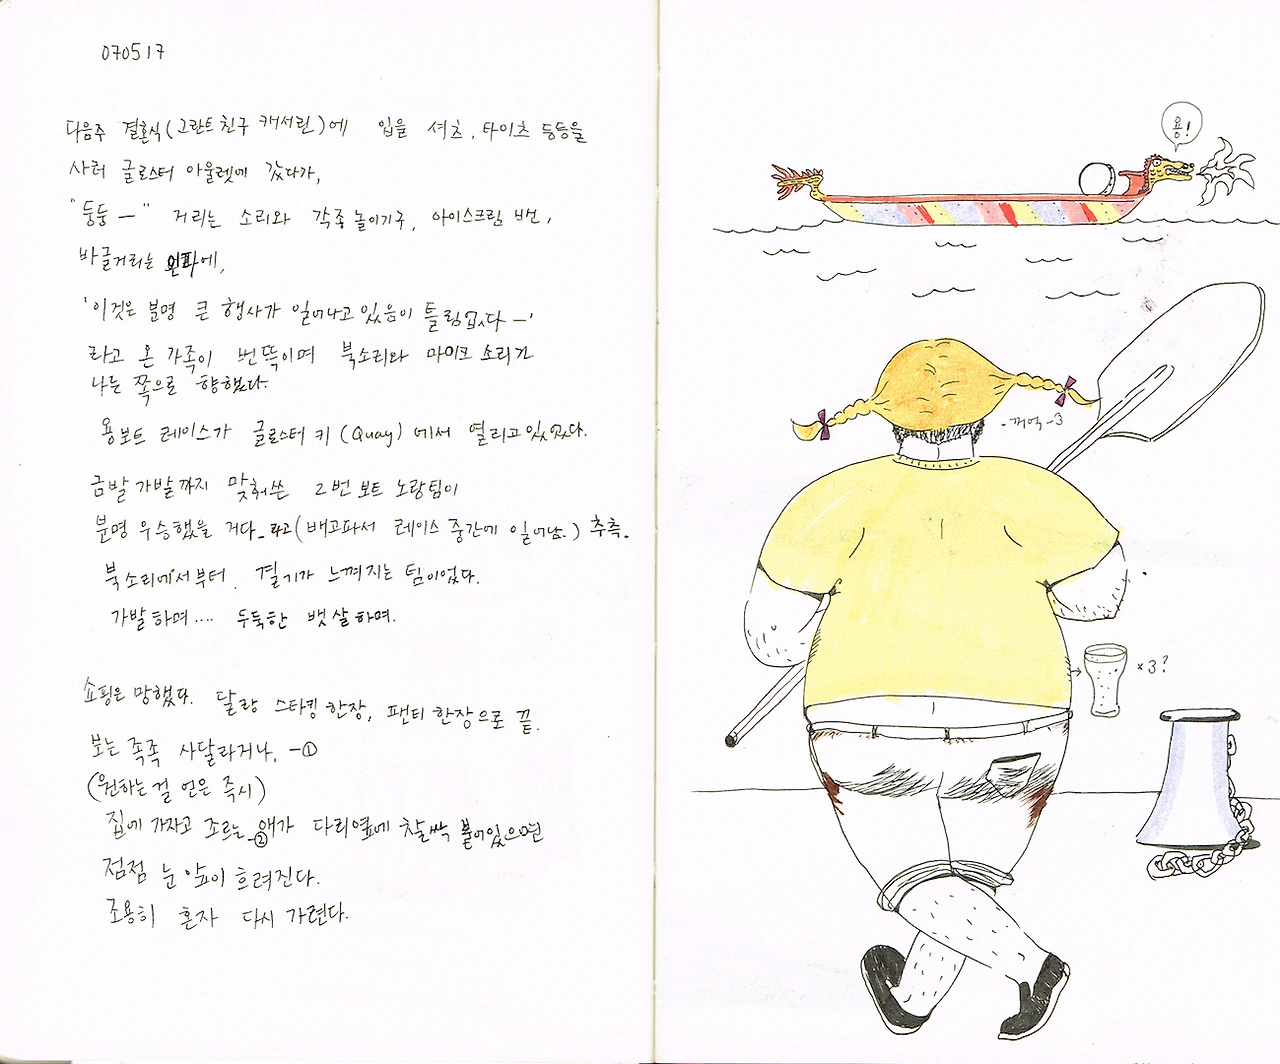 070517
다음주 결혼식(그란트 친구 캐서린)에 입을 셔츠, 타이즈 등등을
사러 글로스터 아울렛에 갔다가,
"둥둥 —" 거리는 소리와 각종 놀이기구, 아이스크림 밴,
바글거리는 인파에,
'이것은 분명 큰 행사가 일어나고 있음이 틀림없다 —'
라고 온 가족이 번뜩이며 북소리와 마이크 소리가
나는 쪽으로 향했다.
용보트 레이스가 글로스터 키 (Quay) 에서 열리고 있었다.
금발 가발까지 맞춰쓴 2번 보트 노랑팀이
분명 우승했을 거다. 라고 (배고파서 레이스 중간에 일어남.) 추측.
북소리에서부터 결기가 느껴지는 팀이었다.
가발하며.... 두둑한 뱃살하며.
쇼핑은 망했다. 달랑 스타킹 한장, 팬티 한장으로 끝.
보는 족족 사달라거나, -①
(원하는 걸 얻은 즉시)
집에 가자고 조르는 -② 애가 다리옆에 찰싹 붙어있으면
점점 눈 앞이 흐려진다.
조용히 혼자 다시 가련다.
용!
-꺼억-3
×3?